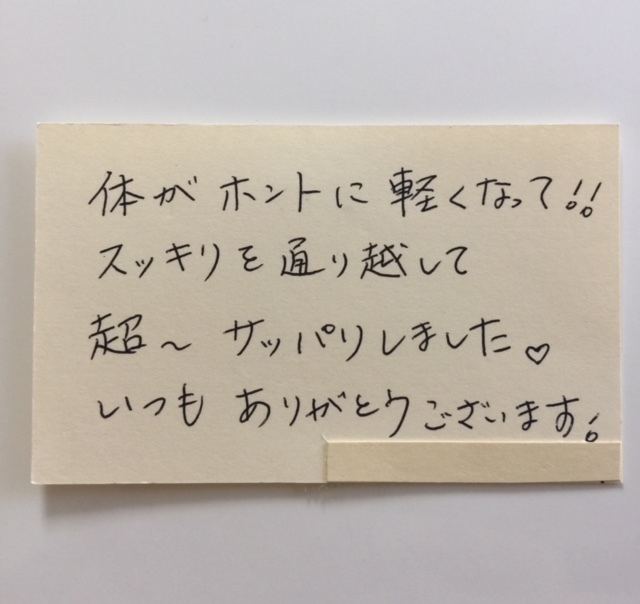 体がホントに軽くなって!!
スッキリを通り越して
超〜 サッパリしました♡
いつも ありがとウございます!